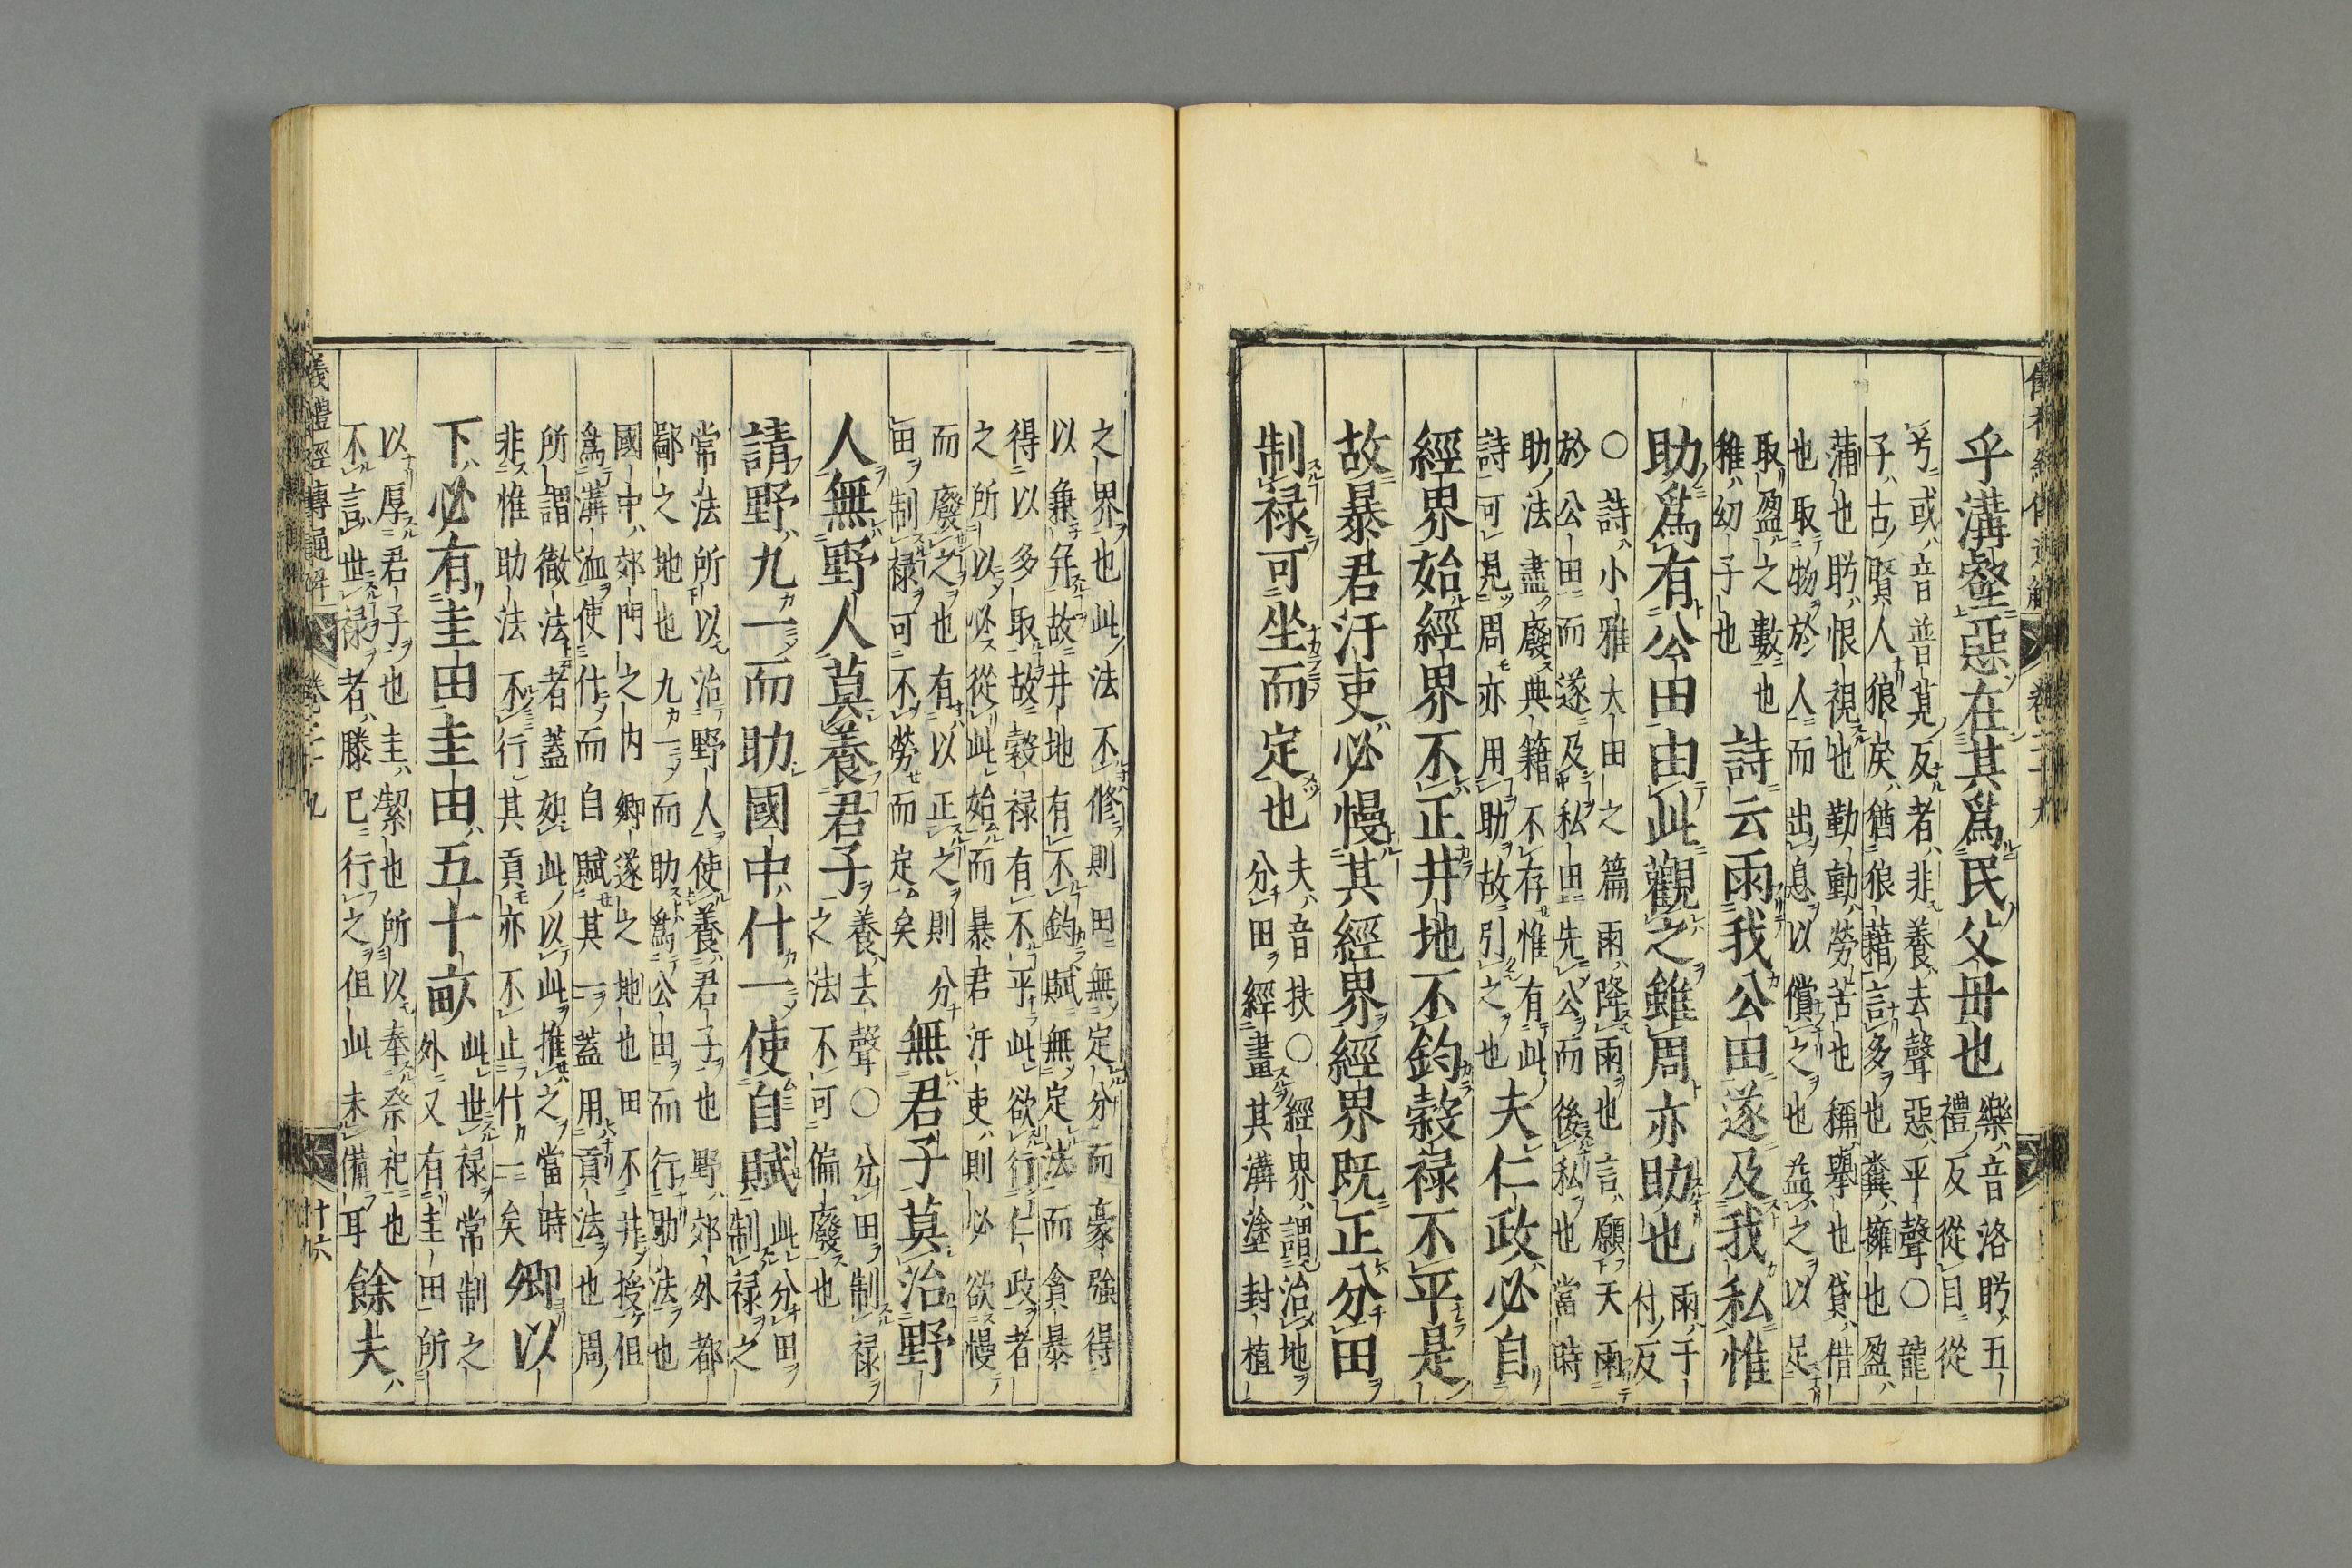 儀禮經傳通解 卷二十九
乎溝壑惡在其爲民父毋也
樂音洛盻五
禮反從目從
兮或音普莧反者非養去聲惡平聲○龍
子古賢人狼戾猶狼藉言多也糞擁也盈
滿也盻恨視也勤動勞苦也稱擧也貸借
也取物於人而出息以償之也益之以足
取盈之數也
稚幼子也
詩云雨我公田遂及我私惟
助爲有公田由此觀之雖周亦助也
雨于
付反
○詩小雅大田之篇雨降雨也言願天雨
於公田而遂及私田先公而後私也當時
助法盡廢典籍不存惟有此
詩可見周亦用助故引之也
夫仁政必自
經界始經界不正井地不鈞穀禄不平是
故暴君汙吏必慢其經界經界既正分田
制禄可坐而定也
夫音扶○經界謂治地
分田經畫其溝塗封植
之界也此法不修則田無定分而豪強得
以兼并故井地有不鈞賦無定法而貪暴
得以多取故穀禄有不平此欲行仁政者
之所以必從此始而暴君汙吏則必欲慢
而廢之也有以正之則分
田制禄可不勞而定矣
無君子莫治野
人無野人莫養君子
養去聲○分田制禄
之法不可偏廢也
請野九一而助國中什一使自賦
此分田
制禄之
常法所以治野人使養君子也野郊外都
鄙之地也九一而助爲公田而行助法也
國中郊門之内郷遂之地也田不井授但
爲溝洫使什而自賦其一蓋用貢法也周
所謂徹法者蓋如此以此推之當時
非惟助法不行其貢亦不止什一矣
卿以
下必有圭田圭田五十畝
此世禄常制之
外又有圭田所
以厚君子也圭潔也所以奉祭祀也
不言世禄者滕已行之但此未備耳
餘夫
儀禮經傳通解 卷二十九 十六